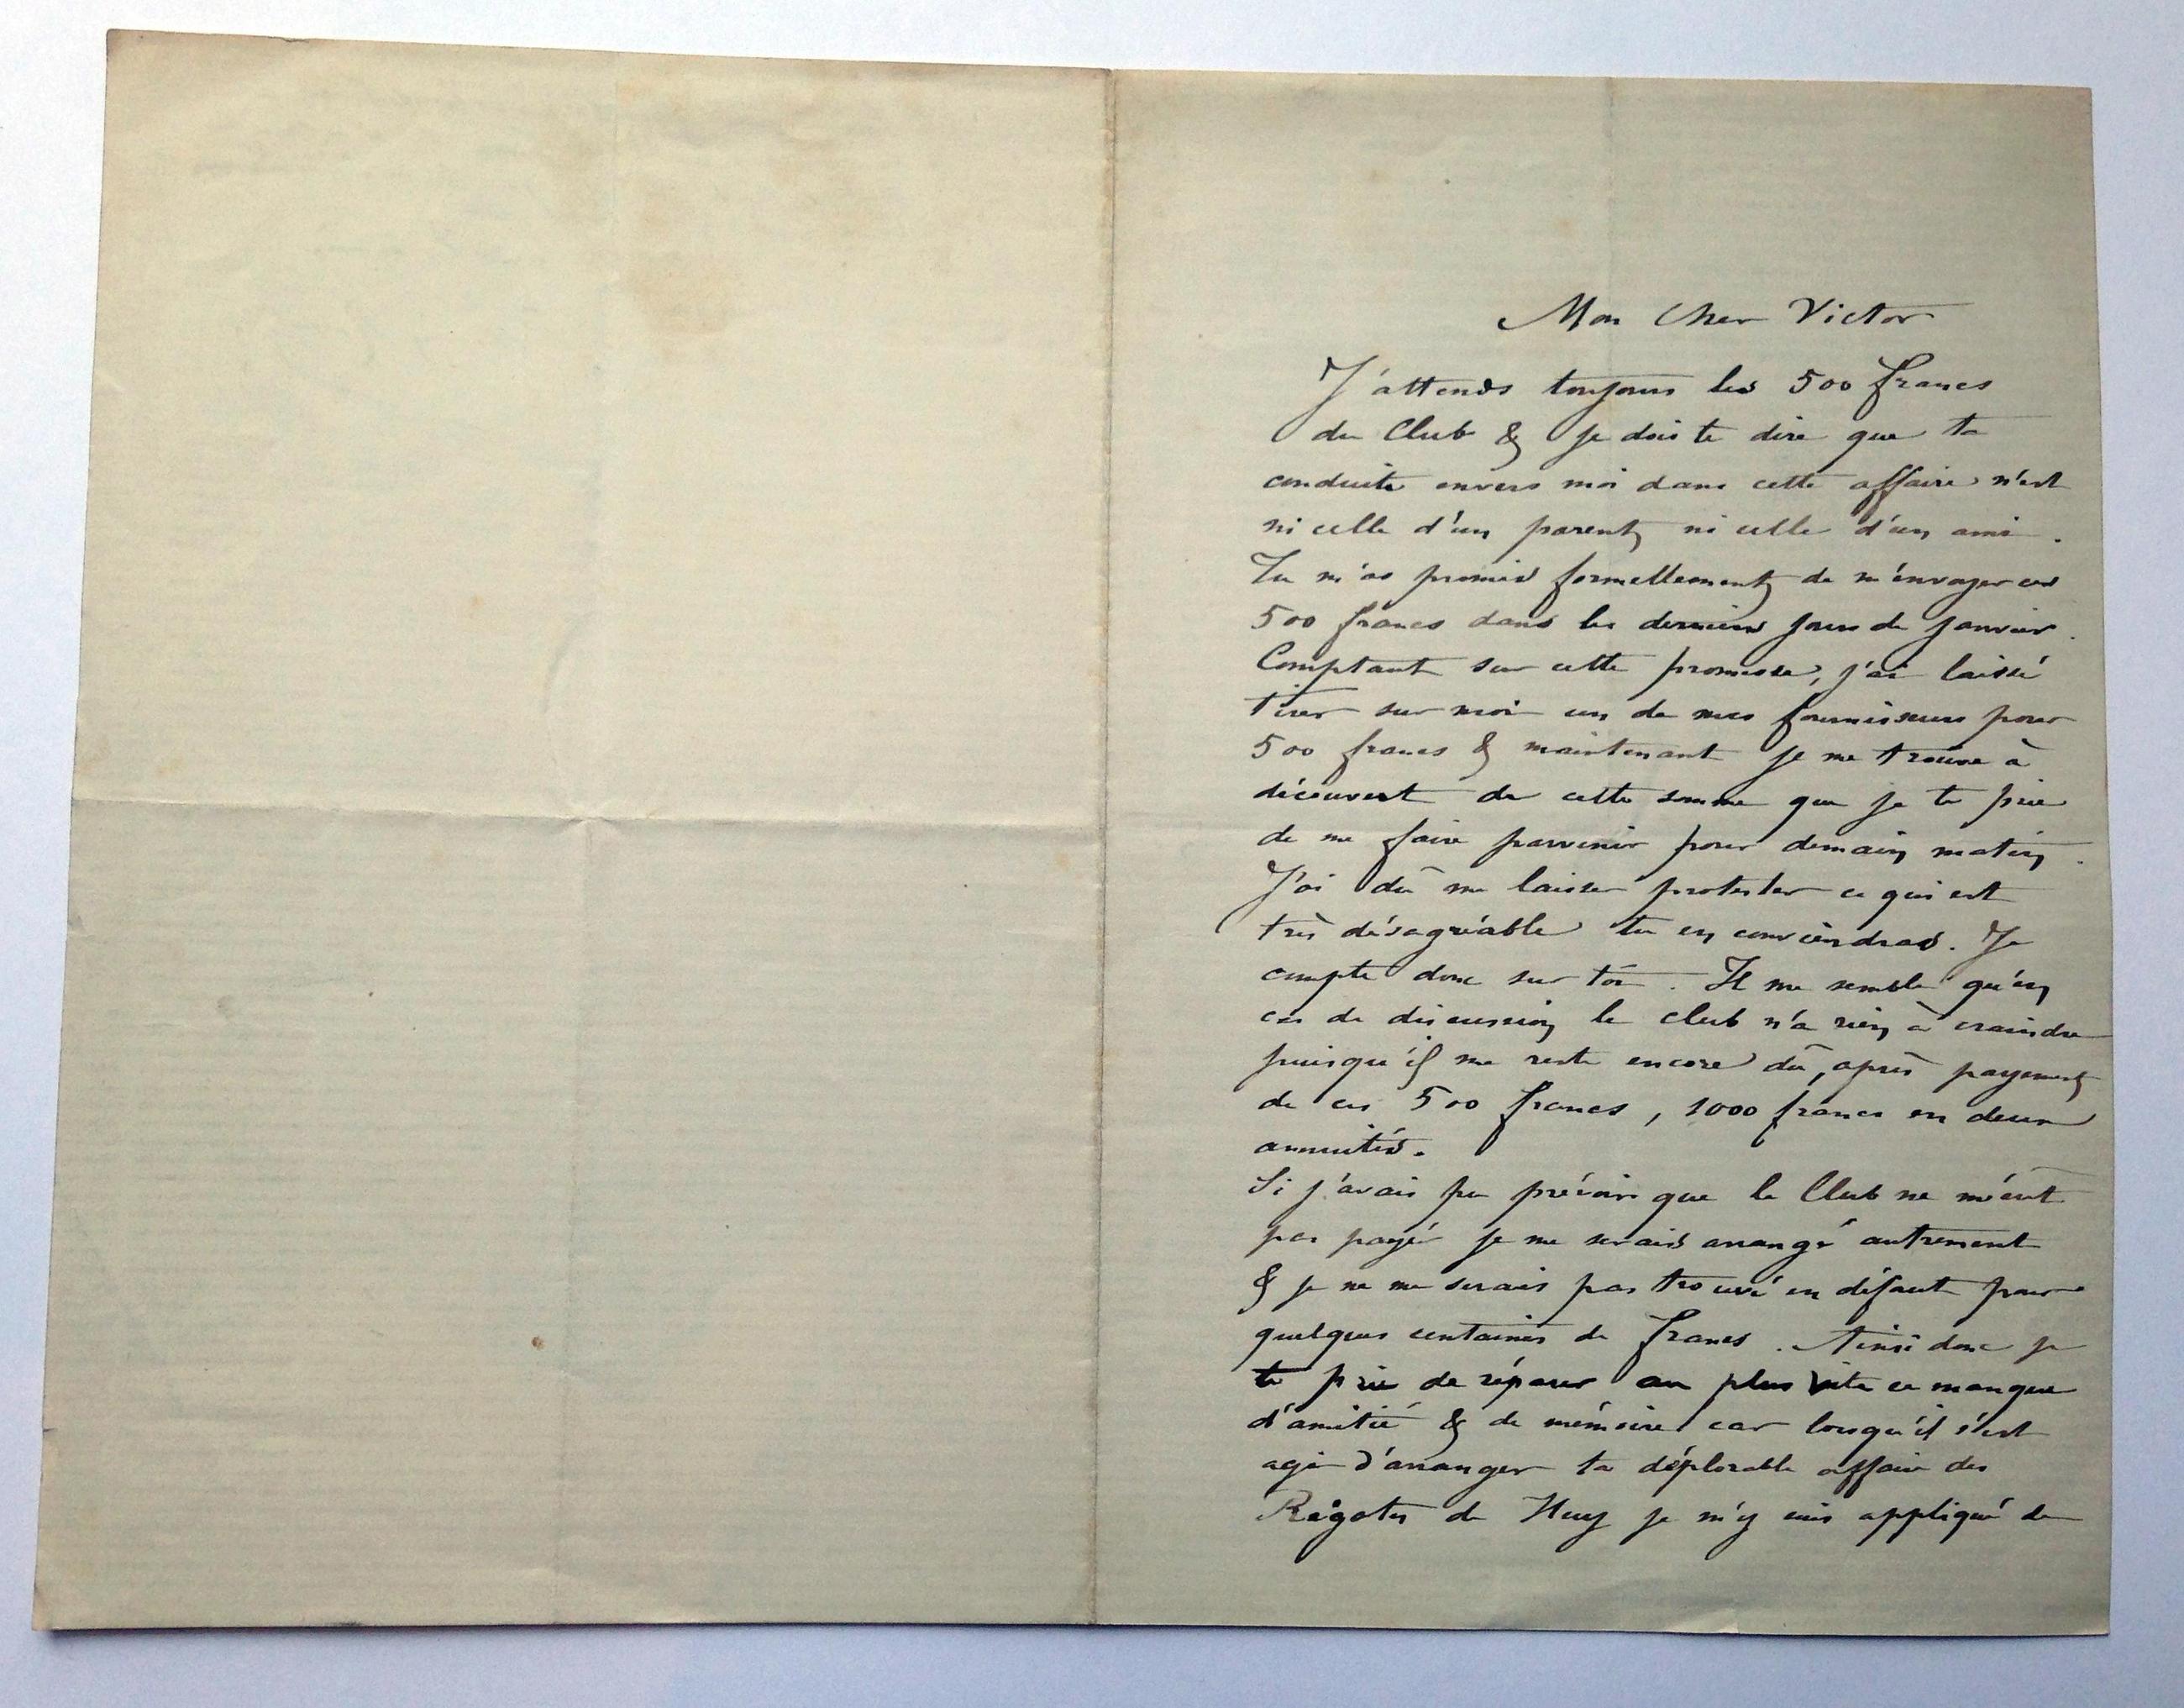 Mon Cher Victor
J'attends toujours les 500 francs
du Club & je dois te dire que ta
conduite envers moi dans cette affaire n'est
ni celle d'un parent ni celle d'un ami.
Tu m'as promis formellement de m'envoyer ces
500 francs dans les derniers jours de janvier.
Comptant sur cette promesse, j'ai laissé
tirer sur moi un de mes fournisseurs pour
500 francs & maintenant je me trouve à
découvert de cette somme que je te prie
de me faire parvenir pour demain matin.
J'ai dû me laisser protester ce qui est
très désagréable tu en conviendras. Je
compte donc sur toi. Il me semble qu'en
cas de discussion le club n'a rien à craindre
puisqu'il me reste encore dû, après payement
de ces 500 francs, 1000 francs en deux
annuités.
Si j'avais pu prévoir que le Club ne m'eut
pas payé je me serais arrangé autrement
& je ne me serais pas trouvé en défaut pour
quelques centaines de francs. Ainsi donc je
te prie de réparer au plus vite ce manque
d'amitié & de mémoire car lorsqu'il s'est
agi d'arranger ta déplorable affaire des
Régates de Huy je m'y suis appliqué de